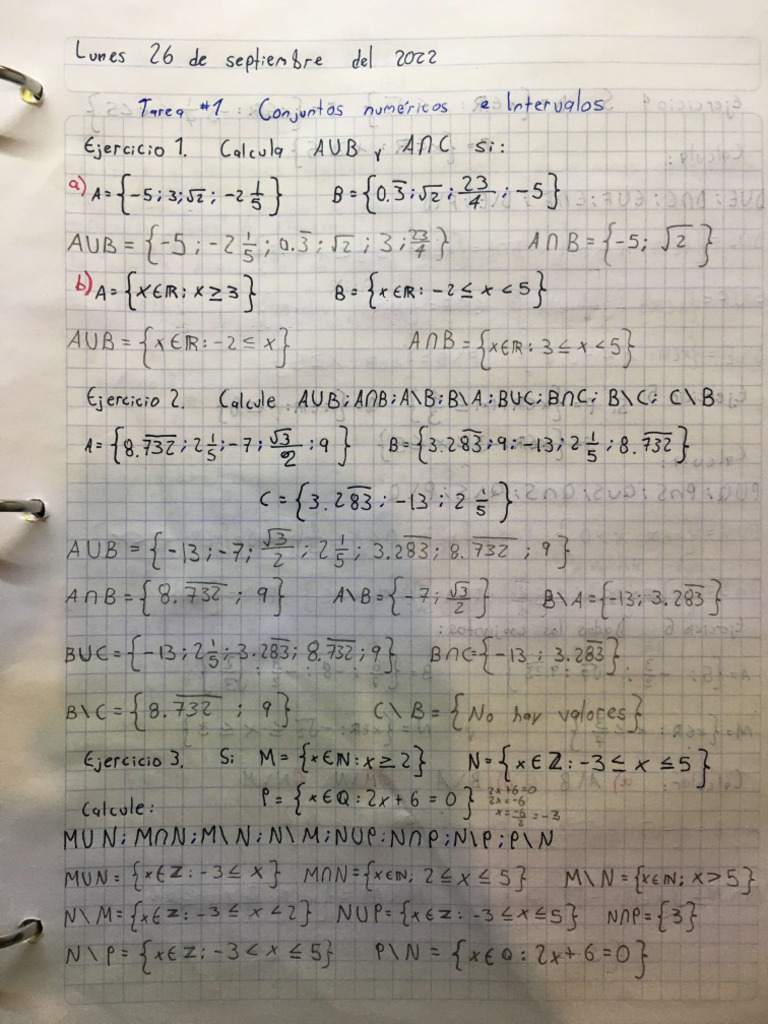 Lunes 26 de septiembre del 2022
Tarea #1 Conjuntos numéricos e Intervalos
Ejercicio 1. Calcula A∪B y A∩C si:
a) A={-5;3;√2;-2 1/5} B={0.3̅;√2;23/4;-5}
A∪B={-5;-2 1/5;0.3̅;√2;3;23/4} A∩B={-5;√2}
b) A={x∈ℝ; x≥3} B={x∈ℝ: -2≤x<5}
A∪B={x∈ℝ: -2≤x} A∩B={x∈ℝ: 3≤x<5}
Ejercicio 2. Calcule A∪B; A∩B; A\B; B\A; B∪C; B∩C; B\C; C\B
A={8.7̅3̅2̅;2 1/5;-7;√3/2;9} B={3.28̅3̅;9;-13;2 1/5;8.7̅3̅2̅}
C={3.28̅3̅;-13;2 1/5}
A∪B={-13;-7;√3/2;2 1/5;3.28̅3̅;8.7̅3̅2̅;9}
A∩B={8.7̅3̅2̅;9} A\B={-7;√3/2} B\A={-13;3.28̅3̅}
B∪C={-13;2 1/5;3.28̅3̅;8.7̅3̅2̅;9} B∩C={-13;3.28̅3̅}
B\C={8.7̅3̅2̅;9} C\B={No hay valores}
Ejercicio 3. Si: M={x∈ℕ: x≥2} N={x∈ℤ: -3≤x≤5}
P={x∈ℚ: 2x+6=0} 2x+6=0
2x=-6
x=-6/2=-3
Calcule:
M∪N; M∩N; M\N; N\M; N∪P; N∩P; N\P; P\N
M∪N={x∈ℤ: -3≤x} M∩N={x∈ℕ; 2≤x≤5} M\N={x∈ℕ; x>5}
N\M={x∈ℤ: -3≤x<2} N∪P={x∈ℤ: -3≤x≤5} N∩P={3}
N\P={x∈ℤ: -3<x≤5} P\N={x∈ℚ: 2x+6=0}